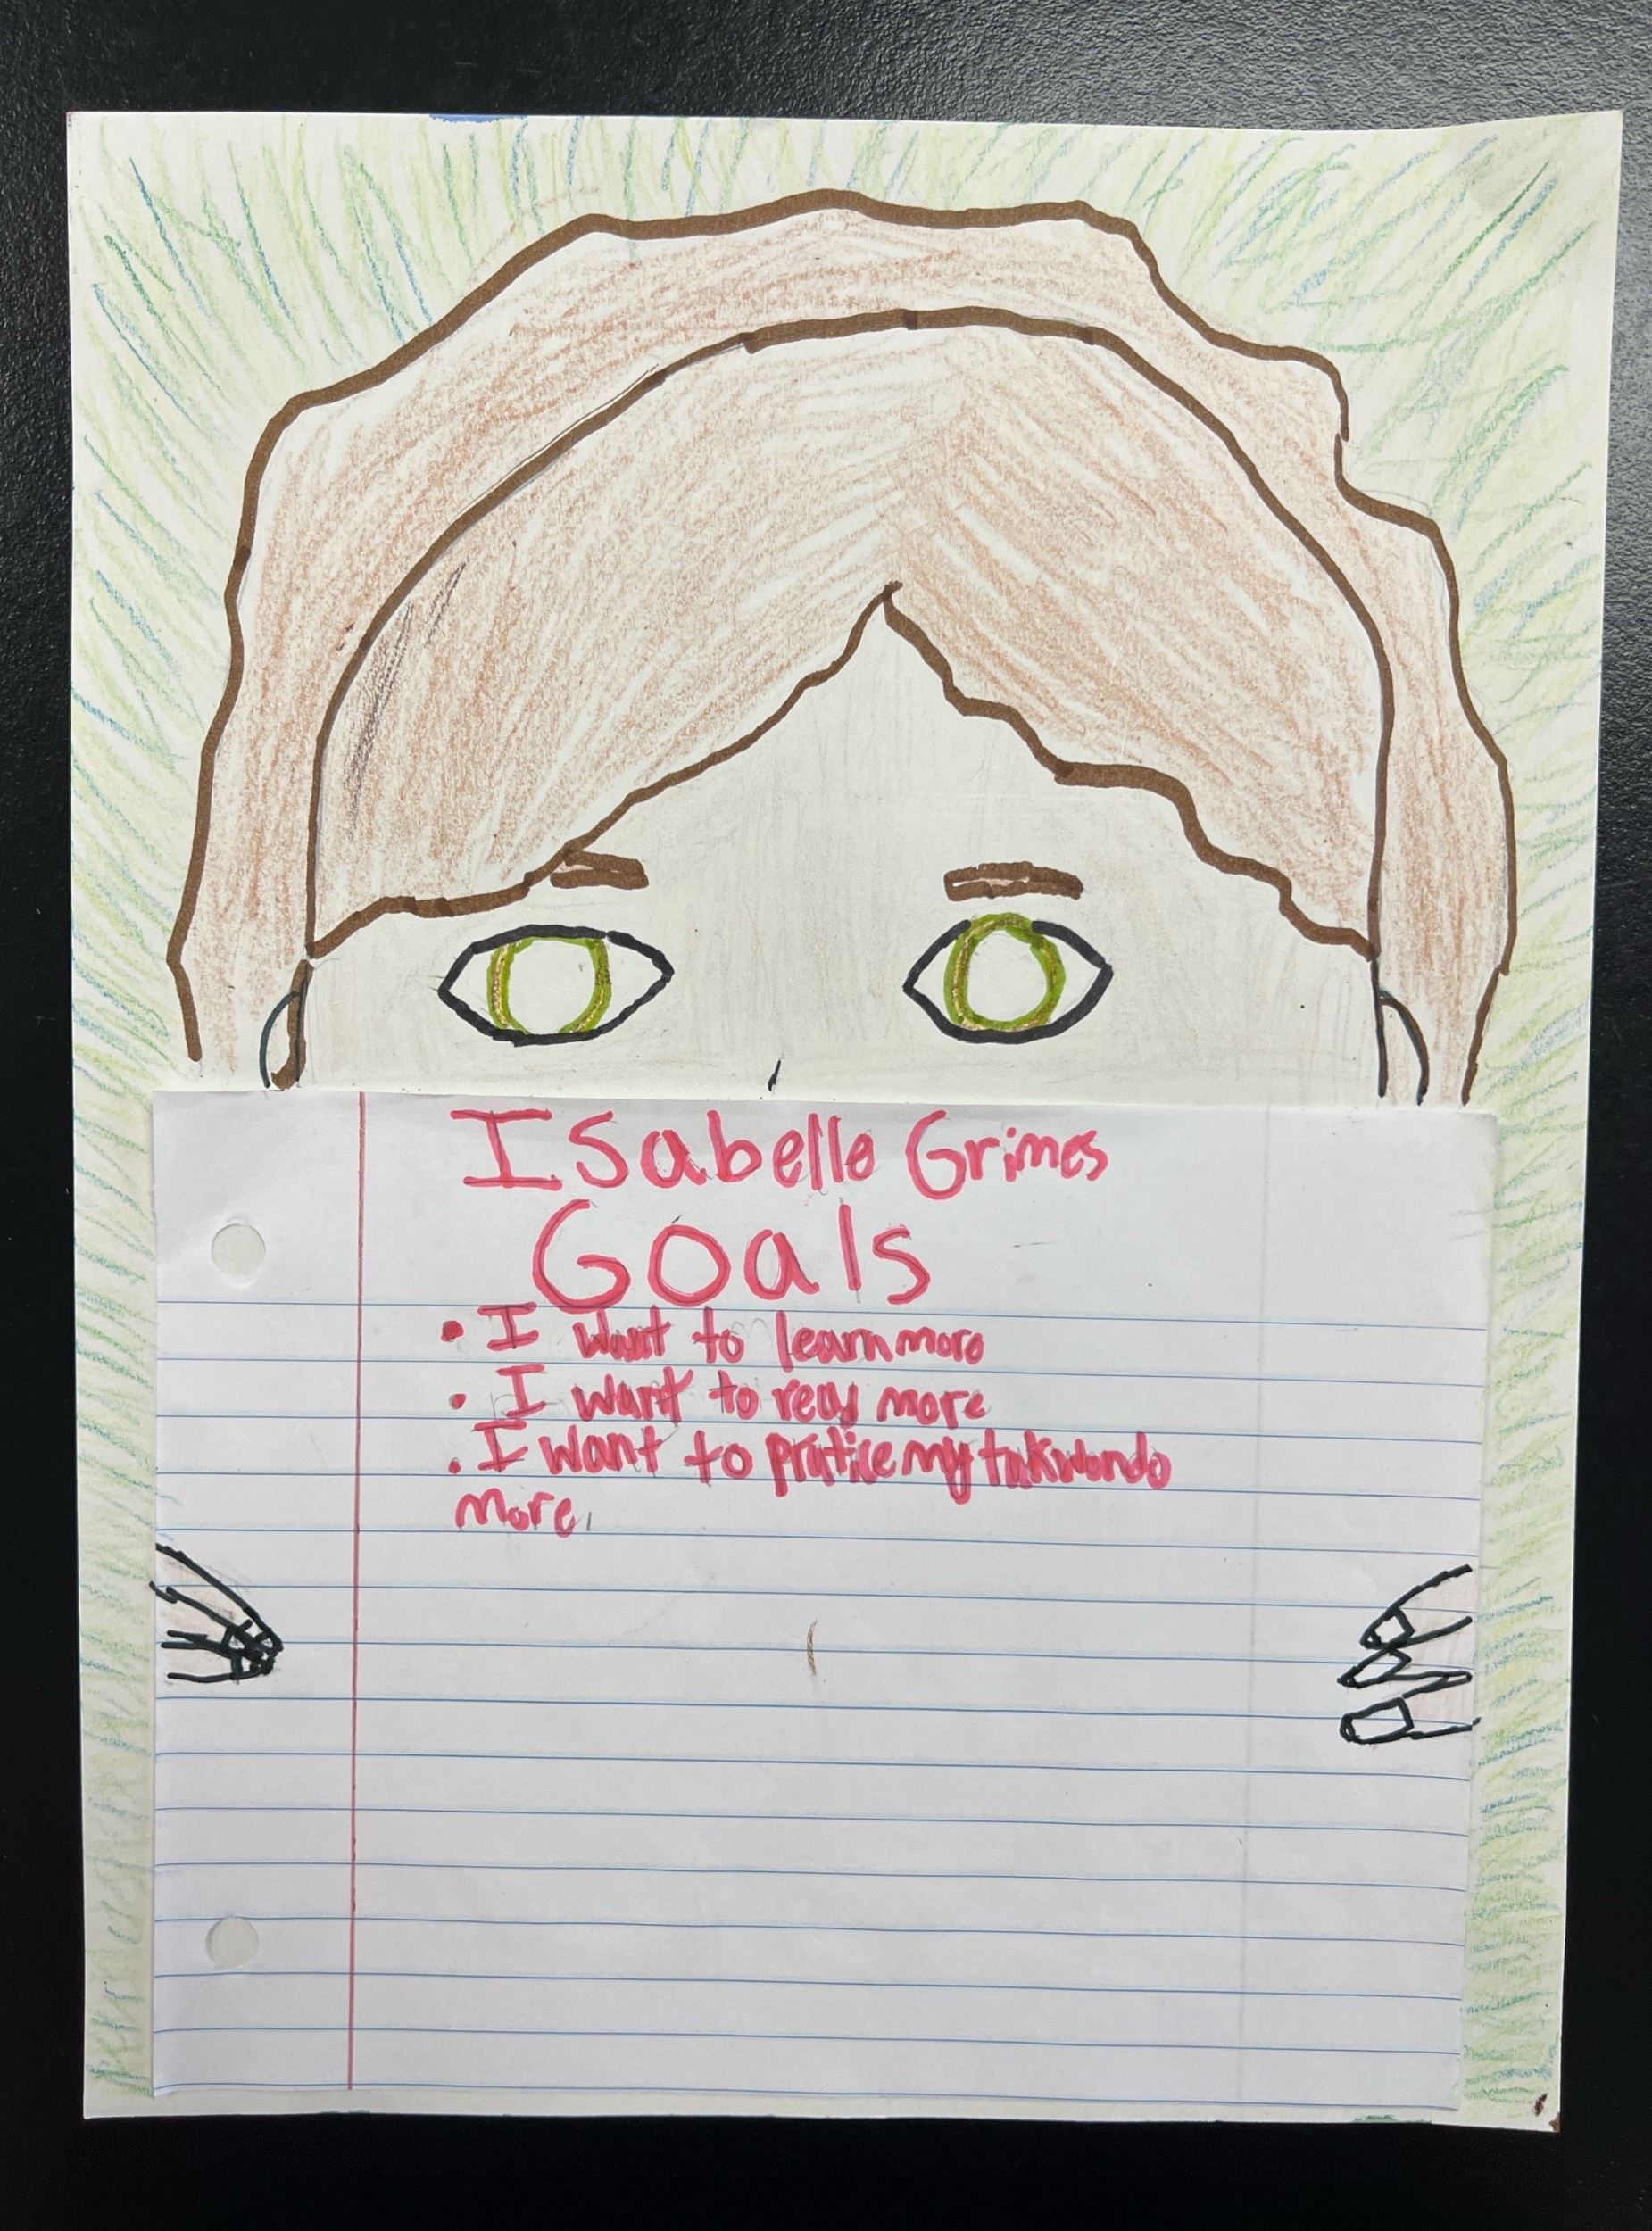 Isabelle Grimes
Goals
• I want to learn more
• I want to read more
. I want to pratice my takwondo
more.